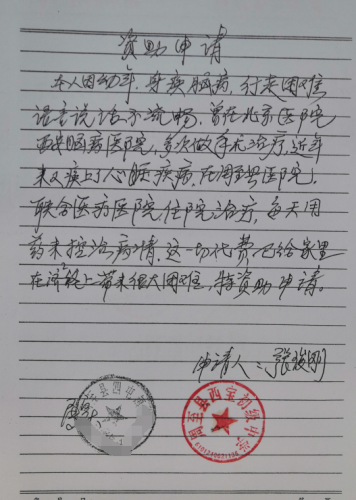 资助申请
本人因幼年,身疾脑病,行走困难
语言说话不流畅,曾在北京医院
西安脑病医院,多次做手术治疗,近年
来又患上心脏疾病,在周至县医院,
联合医疗医院,住院治疗,每天用
药来控治病情,这一切化费已给家里
在经济上带来很大困难,特资助申请。
申请人:张骏刚
周至县西宝初级中学